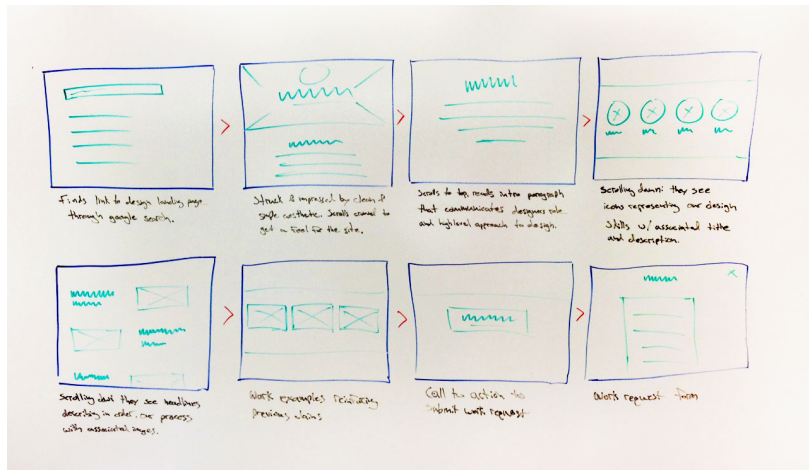 Finds link to design landing page
through google search.
Struck & impressed by clean &
simple aesthetic. Scrolls around to
get a feel for the site.
Scrolls to top, reads intro paragraph
that communicates designers role
and high level approach to design.
Scrolling down: they see
icons representing our design
skills w/ associated title
and description.
Scrolling down they see headlines
describing in order, our process
with associated images.
Work examples reinforcing
previous claims
Call to action to
submit work request
Work request form